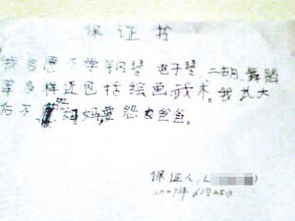 保证书
我自愿不学钢琴 电子琴 二胡、舞蹈
等多样还包括绘画武术。我长大
后不怨妈妈,要怨爸爸。
保证人:(